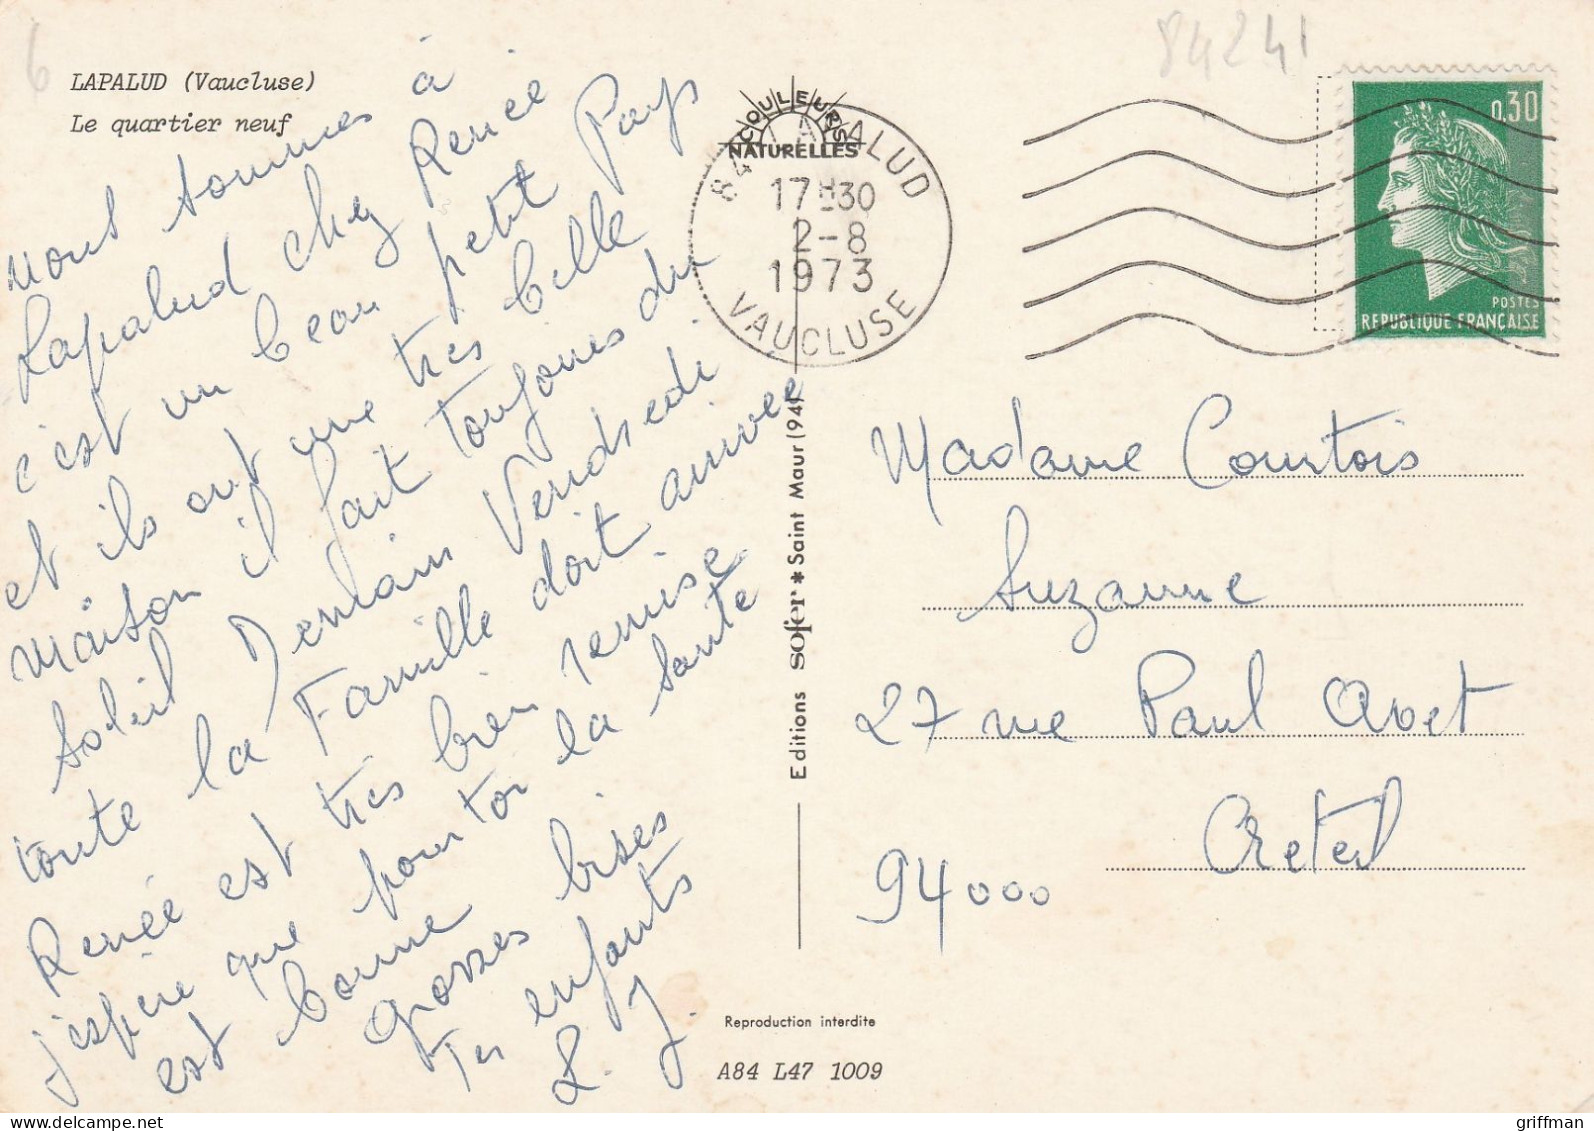 84241
6
LAPALUD (Vaucluse)
Le quartier neuf
nous sommes à
Lapalud chez Renée
c'est un beau petit Pays
et ils ont une très belle
maison il fait toujours du
soleil Demain Vendredi
toute la Famille doit arrivée
Renée est très bien remise
j'espère que pour toi la santé
est bonne
grosses bises
Tes enfants
L. J.
COULEURS
NATURELLES
84 LAPALUD
17H30
2-8
1973
VAUCLUSE
0,30
POSTES
REPUBLIQUE FRANÇAISE
Editions sofer * Saint Maur (94)
Madame Courtois
Suzanne
27 rue Paul Avet
Creteil
94000
Reproduction interdite
A84 L47 1009
delcampe.net
griffmann